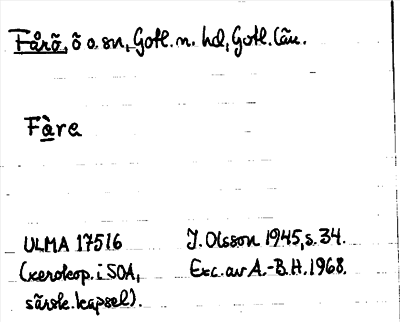 Fårö, ö o. sn, Gotl. n. hd, Gotl. län.
Fàre
ULMA 17516 J. Olsson 1945, s. 34.
(xerokop. i SOA, Exc. av A.-B.H. 1968.
särsk. kapsel).